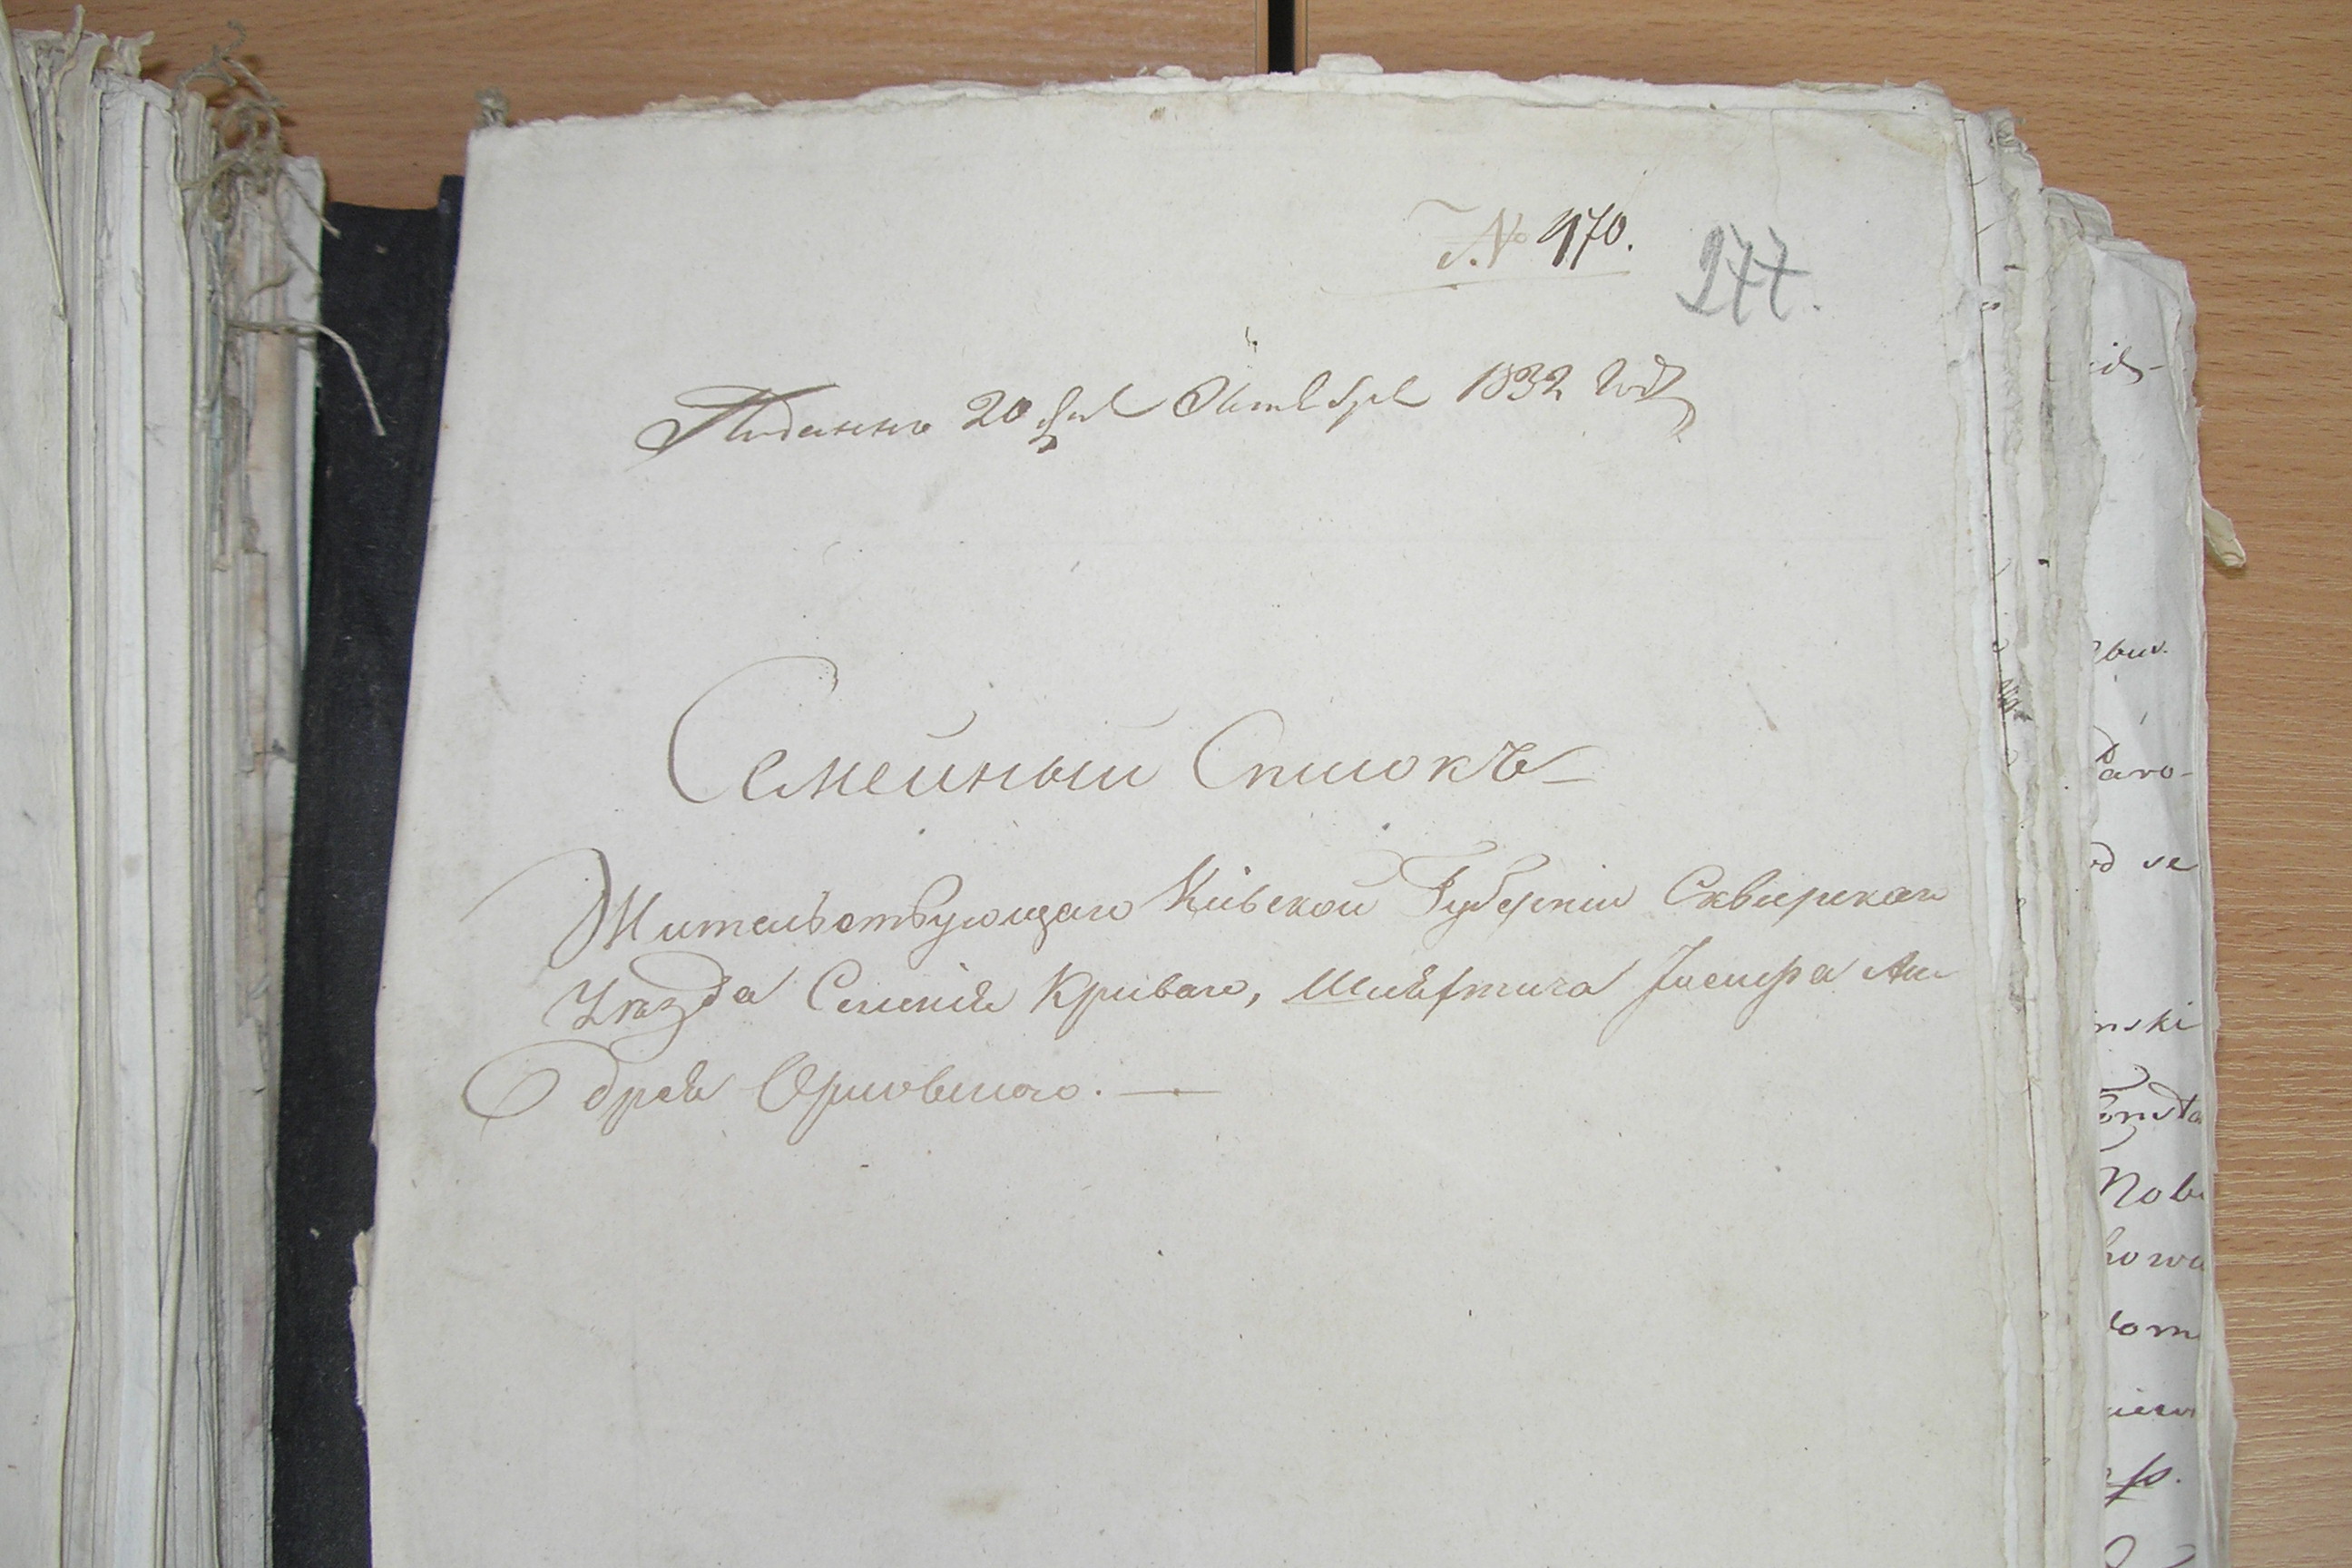 № 970.
277.
Поданно 20 дня Октября 1832 года
Семейный Списокъ
Жительствующаго Кіевской Губерніи Сквирскаго
Уѣзда Селеніи Криваго, Шляхтича Іосифа Ан
дрея Орловскаго. —
ids-
Paro-
od se
nski
onsta
Nob
howa
tom